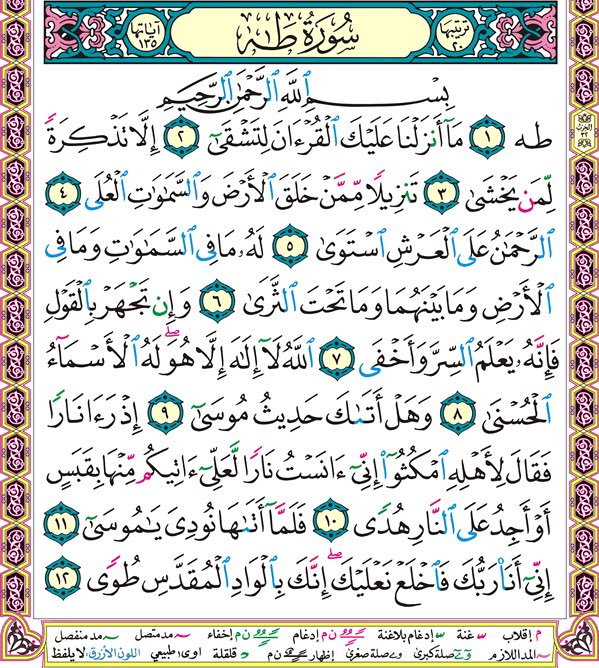 ترتيبها ٢٠ سُورَةُ طه آياتها ١٣٥
بِسْمِ ٱللَّهِ ٱلرَّحْمَٰنِ ٱلرَّحِيمِ
الحزب ٣٢
طه ١ مَآ أَنزَلْنَا عَلَيْكَ ٱلْقُرْءَانَ لِتَشْقَىٰٓ ٢ إِلَّا تَذْكِرَةً
لِّمَن يَخْشَىٰ ٣ تَنزِيلًا مِّمَّنْ خَلَقَ ٱلْأَرْضَ وَٱلسَّمَٰوَٰتِ ٱلْعُلَى ٤
ٱلرَّحْمَٰنُ عَلَى ٱلْعَرْشِ ٱسْتَوَىٰ ٥ لَهُۥ مَا فِى ٱلسَّمَٰوَٰتِ وَمَا فِى
ٱلْأَرْضِ وَمَا بَيْنَهُمَا وَمَا تَحْتَ ٱلثَّرَىٰ ٦ وَإِن تَجْهَرْ بِٱلْقَوْلِ
فَإِنَّهُۥ يَعْلَمُ ٱلسِّرَّ وَأَخْفَى ٧ ٱللَّهُ لَآ إِلَٰهَ إِلَّا هُوَ ۖ لَهُ ٱلْأَسْمَآءُ
ٱلْحُسْنَىٰ ٨ وَهَلْ أَتَىٰكَ حَدِيثُ مُوسَىٰٓ ٩ إِذْ رَءَا نَارًا
فَقَالَ لِأَهْلِهِ ٱمْكُثُوٓا۟ إِنِّىٓ ءَانَسْتُ نَارًا لَّعَلِّىٓ ءَاتِيكُم مِّنْهَا بِقَبَسٍ
أَوْ أَجِدُ عَلَى ٱلنَّارِ هُدًى ١٠ فَلَمَّآ أَتَىٰهَا نُودِىَ يَٰمُوسَىٰٓ ١١
إِنِّىٓ أَنَا۠ رَبُّكَ فَٱخْلَعْ نَعْلَيْكَ ۖ إِنَّكَ بِٱلْوَادِ ٱلْمُقَدَّسِ طُوًى ١٢
م إقلاب غنة إدغام بلاغنة إدغام م إخفاء مد متصل مد منفصل
المد اللازم صلة كبرى صلة صغرى إظهار قلقلة اوى: طبيعي اللون الأزرق: لا يلفظ